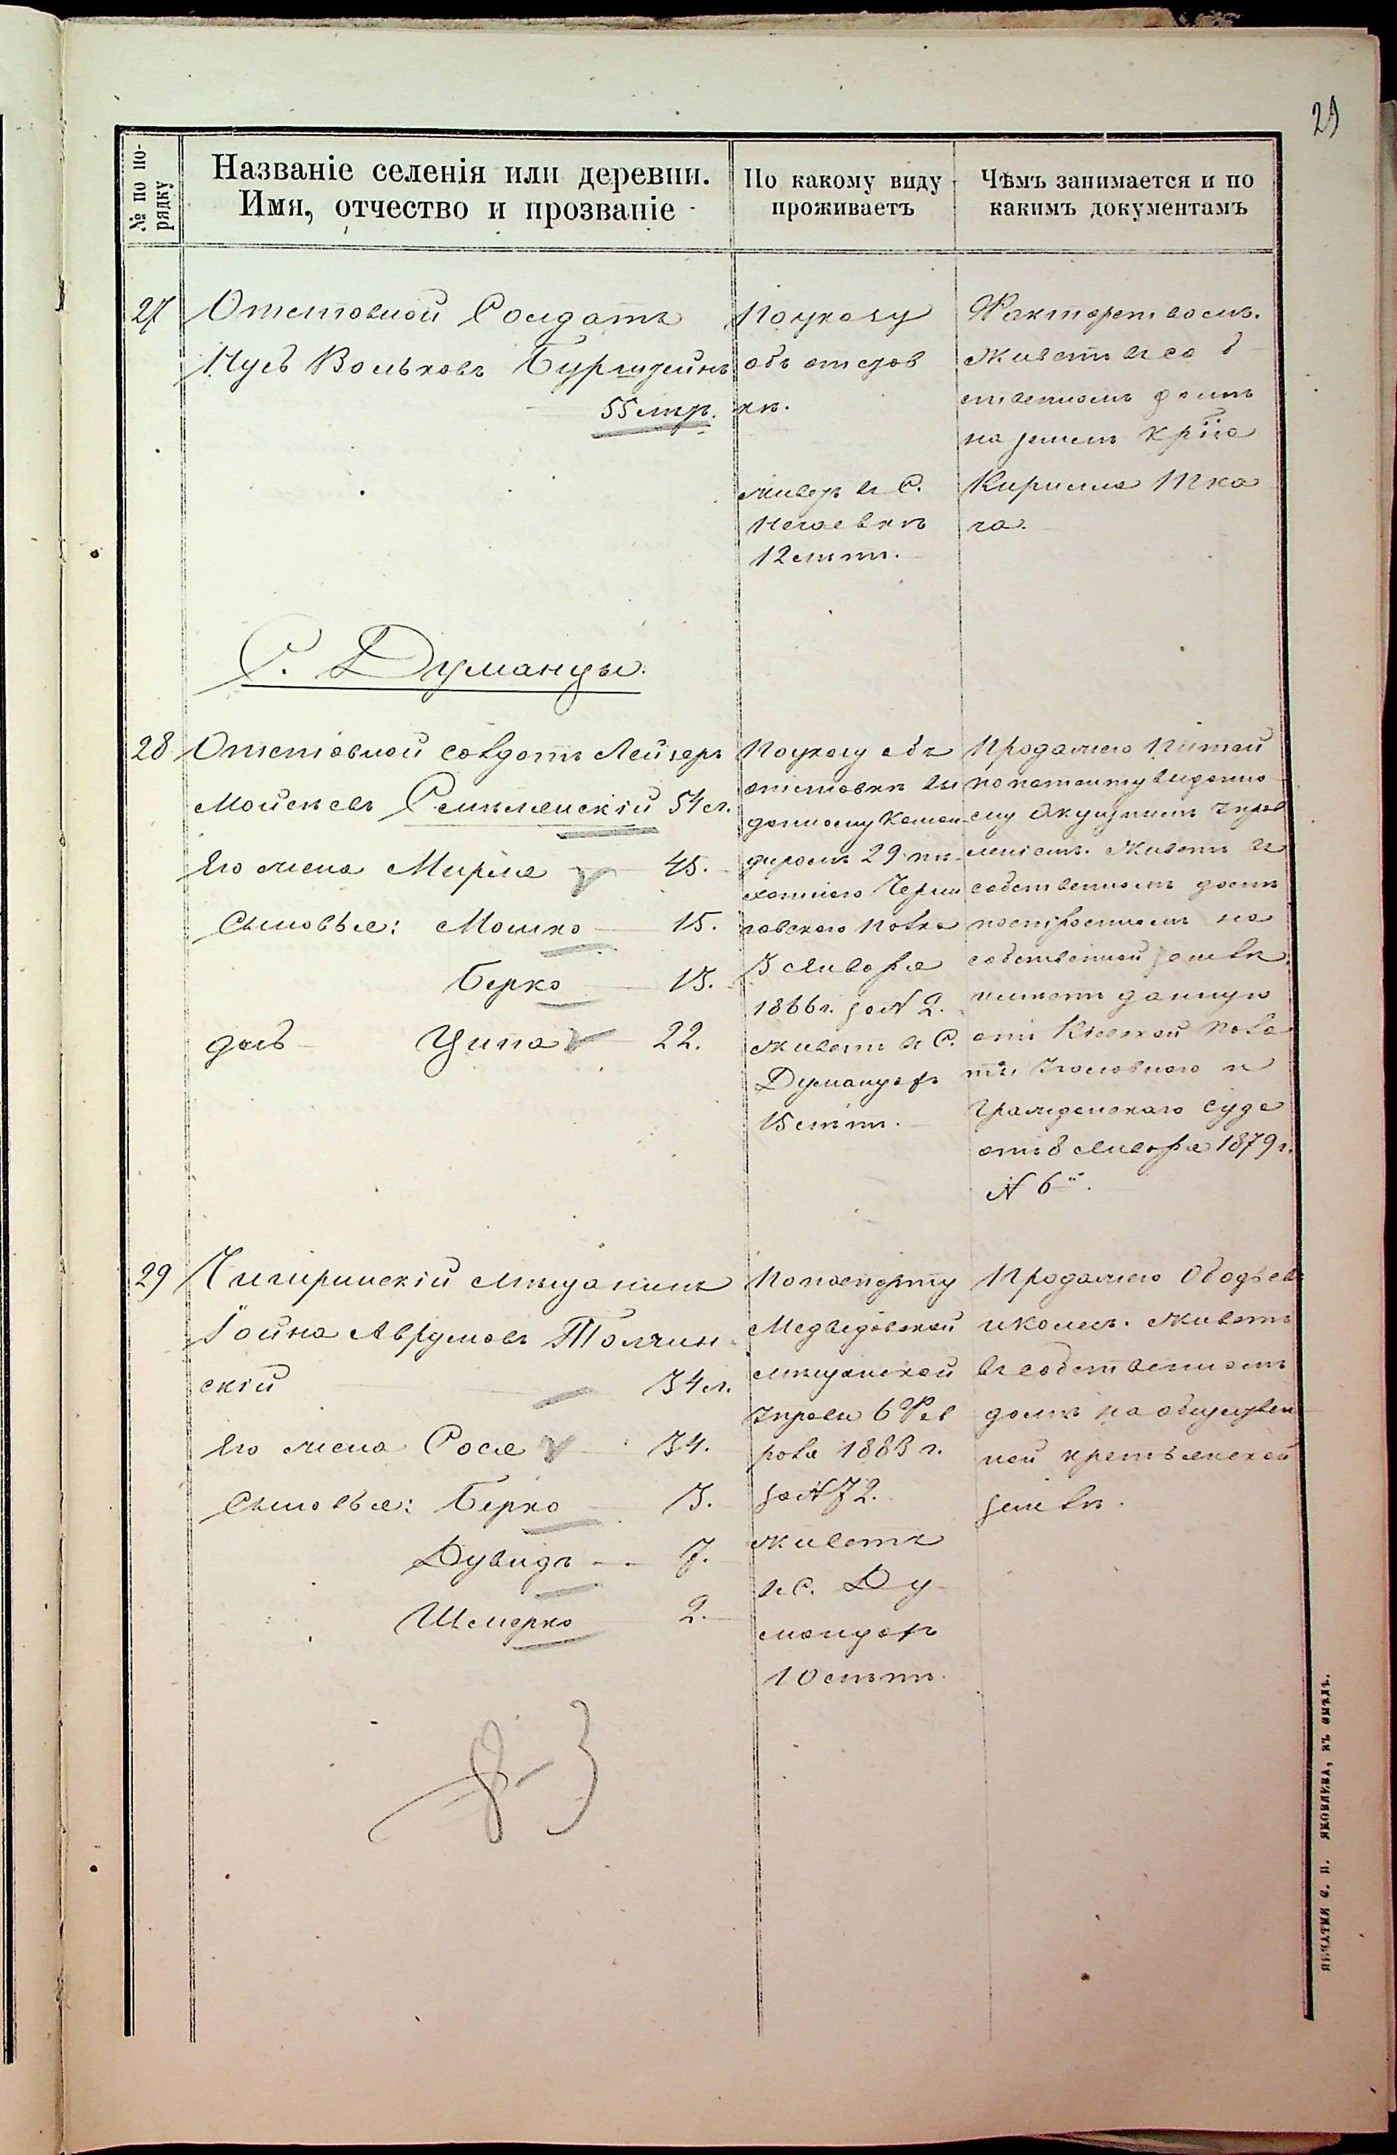 29
№ по по-
рядку
Названіе селенія или деревни.
Имя, отчество и прозваніе
По какому виду
проживаетъ
Чѣмъ занимается и по
какимъ документамъ
27
Отставной Солдатъ
Нусъ Вольковъ Бурштейнъ
55 лѣтъ.
По указу
объ отстав
кѣ.
живетъ въ С.
12 лѣтъ.
Факторствомъ.
Живетъ въ соб
ственномъ домѣ
на землѣ кр-на
Кирилла Тка
ча.
С. Думанцы.
28
Отставной солдатъ Лейзеръ
Мойсеевъ 54 л.
Его жена Мирля 45.
Сыновья: Мошко 15.
Берко 13.
дочь Ципа 22.
По указу объ
отставкѣ вы
данному Коман
диромъ 29 пѣ
хотнаго Черни
говскаго полка
3 Января
1866 г. за № 2.
живетъ въ С.
Думанцахъ
15 лѣтъ.
Продажею питей
по патенту выданно
му Акцизнымъ Управ
леніемъ. Живетъ въ
собственномъ домѣ
построенномъ на
собственной землѣ.
имѣетъ данную
отъ Кіевской Пала
ты Уголовнаго и
Гражданскаго Суда
отъ 8 Января 1879 г.
№ 6й.
29
Чигиринскій мѣщанинъ
Іойна Аврумовъ Толчин
скій 34 л.
Его жена Рося 34.
Сыновья: Берко 3.
Дувидъ 7.
Шмерко 2.
По паспорту
Медведовской
мѣщанской
Управы 6 Фев
раля 1883 г.
за № 72.
живетъ
въ С. Ду
манцахъ
10 лѣтъ.
Продажею
Живетъ
въ собственномъ
домѣ на обществен
ной крестьянской
землѣ.
ПЕЧАТНИ С. П. ЯКОВЛЕВА, КЪ